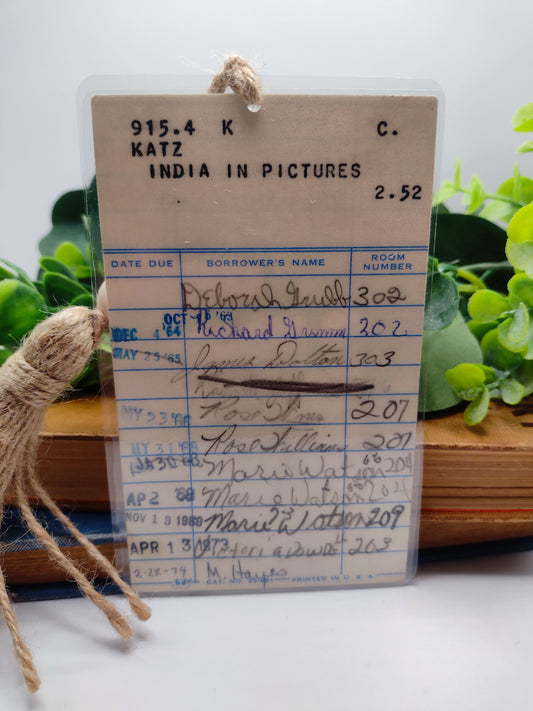 915.4 K C.
KATZ
INDIA IN PICTURES
2.52
DATE DUE BORROWER'S NAME ROOM NUMBER
Deborah Grubb 302
OCT 63
DEC 4 '64 Richard Grimm 202
MAY 25 '65 James Dolton 303
MY 23 '66 Rose 207
MY 31 '66 Rose Williams 207
JA 30 Mario Watson 204
AP 2 '68 Mario Watson 204
NOV 13 1960 Mario Watson 209
APR 13 1973 203
2-22-74 M. Hayes
CAT. NO. PRINTED IN U. S. A.